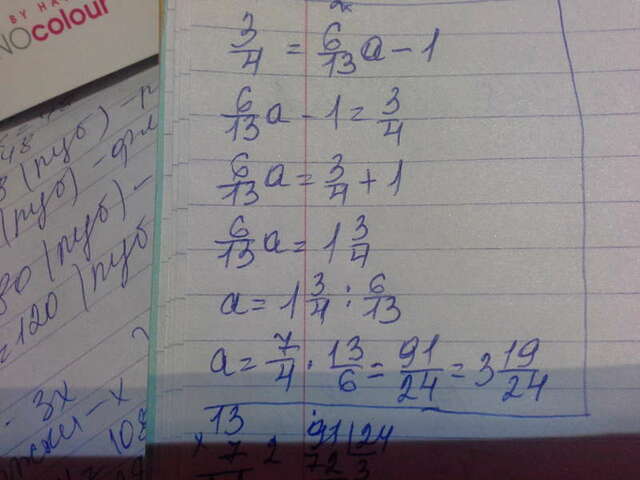 BY HA
NOcolour
48
8 (руб) -
(руб) -
80 (руб) -
= 120 (руб
3x
- x
108
3/4 = 6/13 a - 1
6/13 a - 1 = 3/4
6/13 a = 3/4 + 1
6/13 a = 1 3/4
a = 1 3/4 : 6/13
a = 7/4 · 13/6 = 91/24 = 3 19/24
13
× 7 2
91 | 24
72 | 3